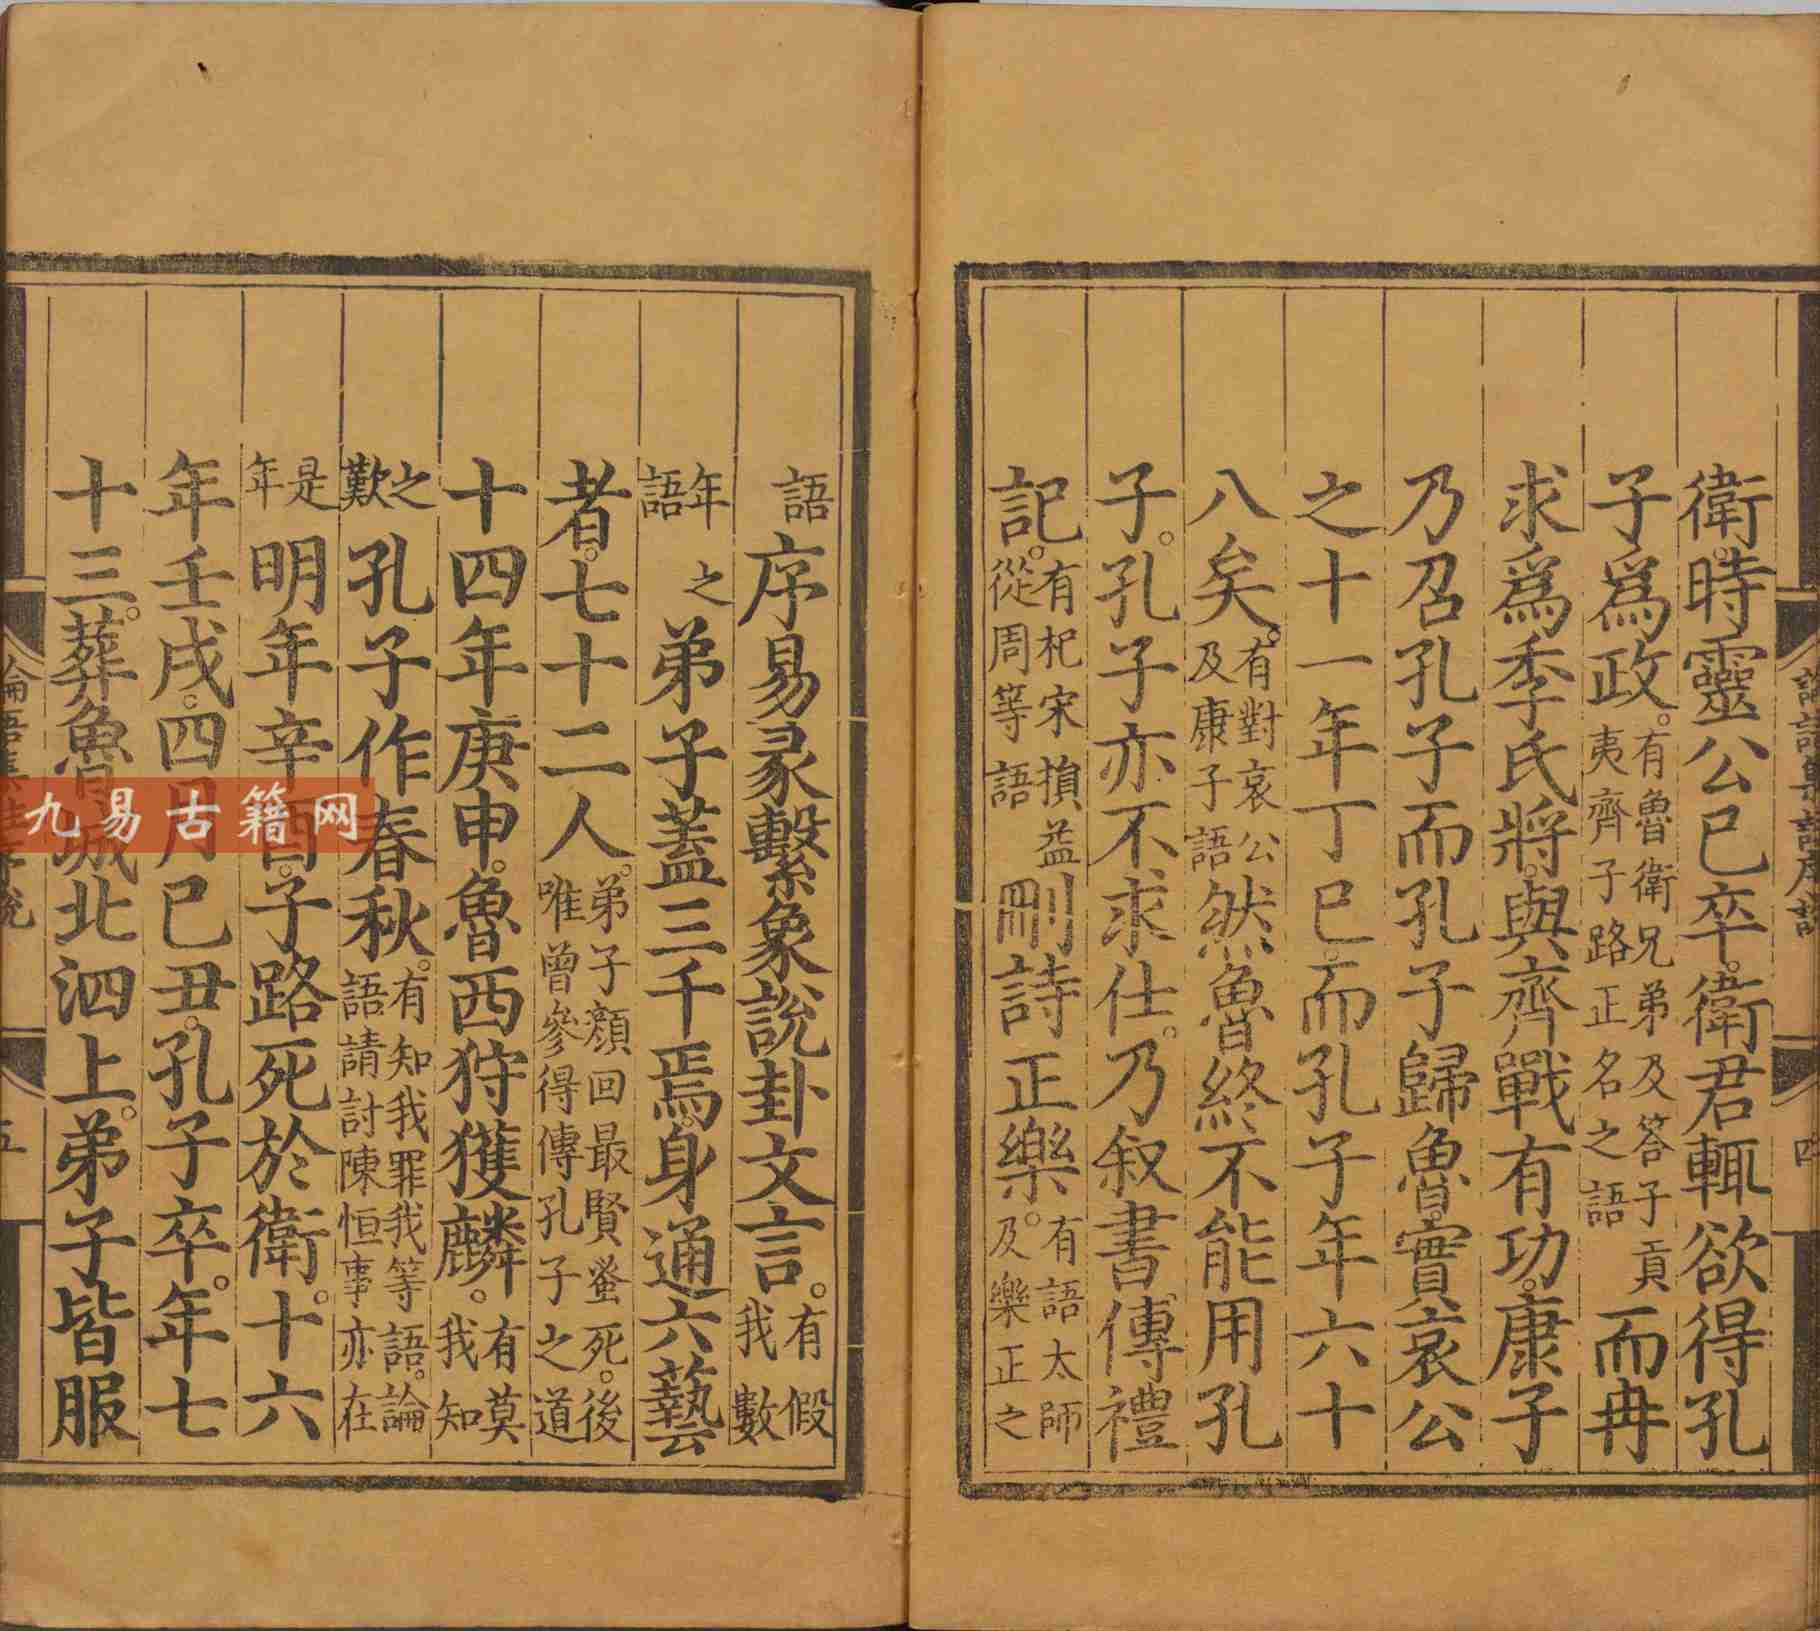 衛。時靈公已卒。衛君輒欲得孔
子爲政。有魯衛兄弟及答子貢夷齊子路正名之語而冉
求爲季氏將。與齊戰有功。康子
乃召孔子而孔子歸魯。實哀公
之十一年丁巳。而孔子年六十
八矣。有對哀公及康子語然魯終不能用孔
子。孔子亦不求仕。乃叙書傳禮
記。有杞宋損益從周等語刪詩正樂。有語太師及樂正之
語序易彖繫象說卦文言。有假我數
年之語弟子蓋三千焉。身通六藝
者。七十二人。弟子顏回最賢蚤死。後唯曾參得傳孔子之道
十四年庚申。魯西狩獲麟。有莫我知
之歎孔子作春秋。有知我罪我等語。論語請討陳恒事亦在
是年明年辛酉。子路死於衛。十六
年壬戌。四月已丑。孔子卒。年七
十三。葬魯城北泗上。弟子皆服
四
五
九易古籍网